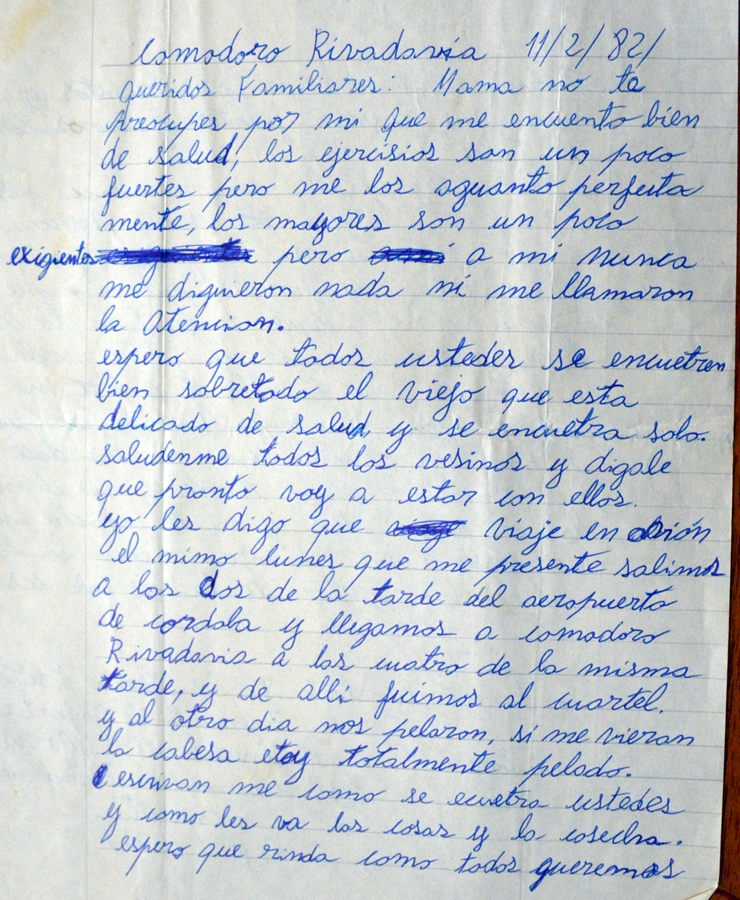 Comodoro Rivadavia 11/2/82/
queridos Familiares: Mama no te
preocupes por mi que me encuento bien
de salud, los ejercisios son un poco
fuertes pero me los aguanto perfecta
mente, los mayores son un poco
exigientes pero a mi nunca
me diguieron nada ni me llamaron
la Atencion.
espero que todos ustedes se encuetren
bien sobretodo el viejo que esta
delicado de salud y se encuetra solo.
saludenme todos los vesinos y digale
que pronto voy a estar con ellos.
yo les digo que viaje en avión
el mimo lunes que me presente salimos
a las dos de la tarde del aeropuerto
de cordoba y llegamos a comodoro
Rivadavia a las cuatro de la misma
tarde, y de alli fuimos al cuartel.
y al otro dia nos pelaron, si me vieran
la cabesa etoy totalmente pelado.
escrivan me como se ecuetra ustedes
y como les va las cosas y la cosecha.
espero que rinda como todos queremos